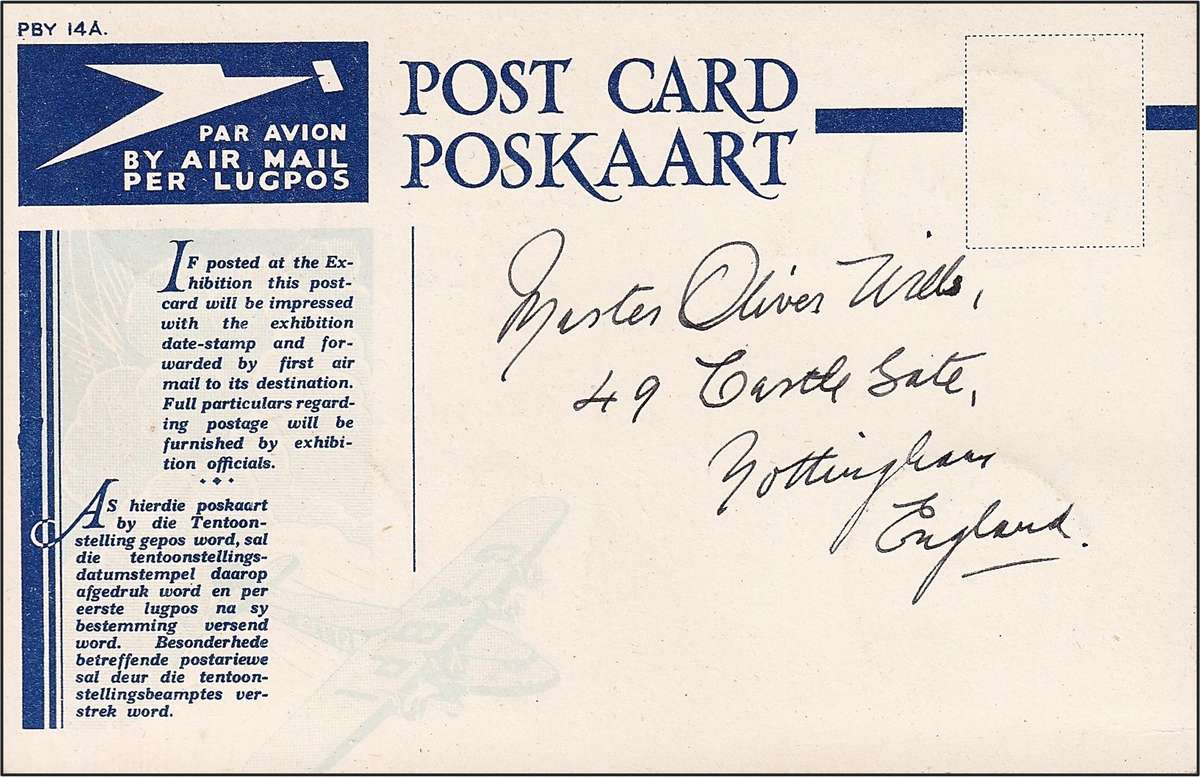 PBY 14A.
PAR AVION
BY AIR MAIL
PER LUGPOS
POST CARD
POSKAART
IF posted at the Ex-
hibition this post-
card will be impressed
with the exhibition
date-stamp and for-
warded by first air
mail to its destination.
Full particulars regard-
ing postage will be
furnished by exhibi-
tion officials.
AS hierdie poskaart
by die Tentoon-
stelling gepos word, sal
die tentoonstellings-
datumstempel daarop
afgedruk word en per
eerste lugpos na sy
bestemming versend
word. Besonderhede
betreffende postariewe
sal deur die tentoon-
stellingsbeamptes ver-
strek word.
Master Oliver Wills,
49 Castle Gate,
Nottingham
England.